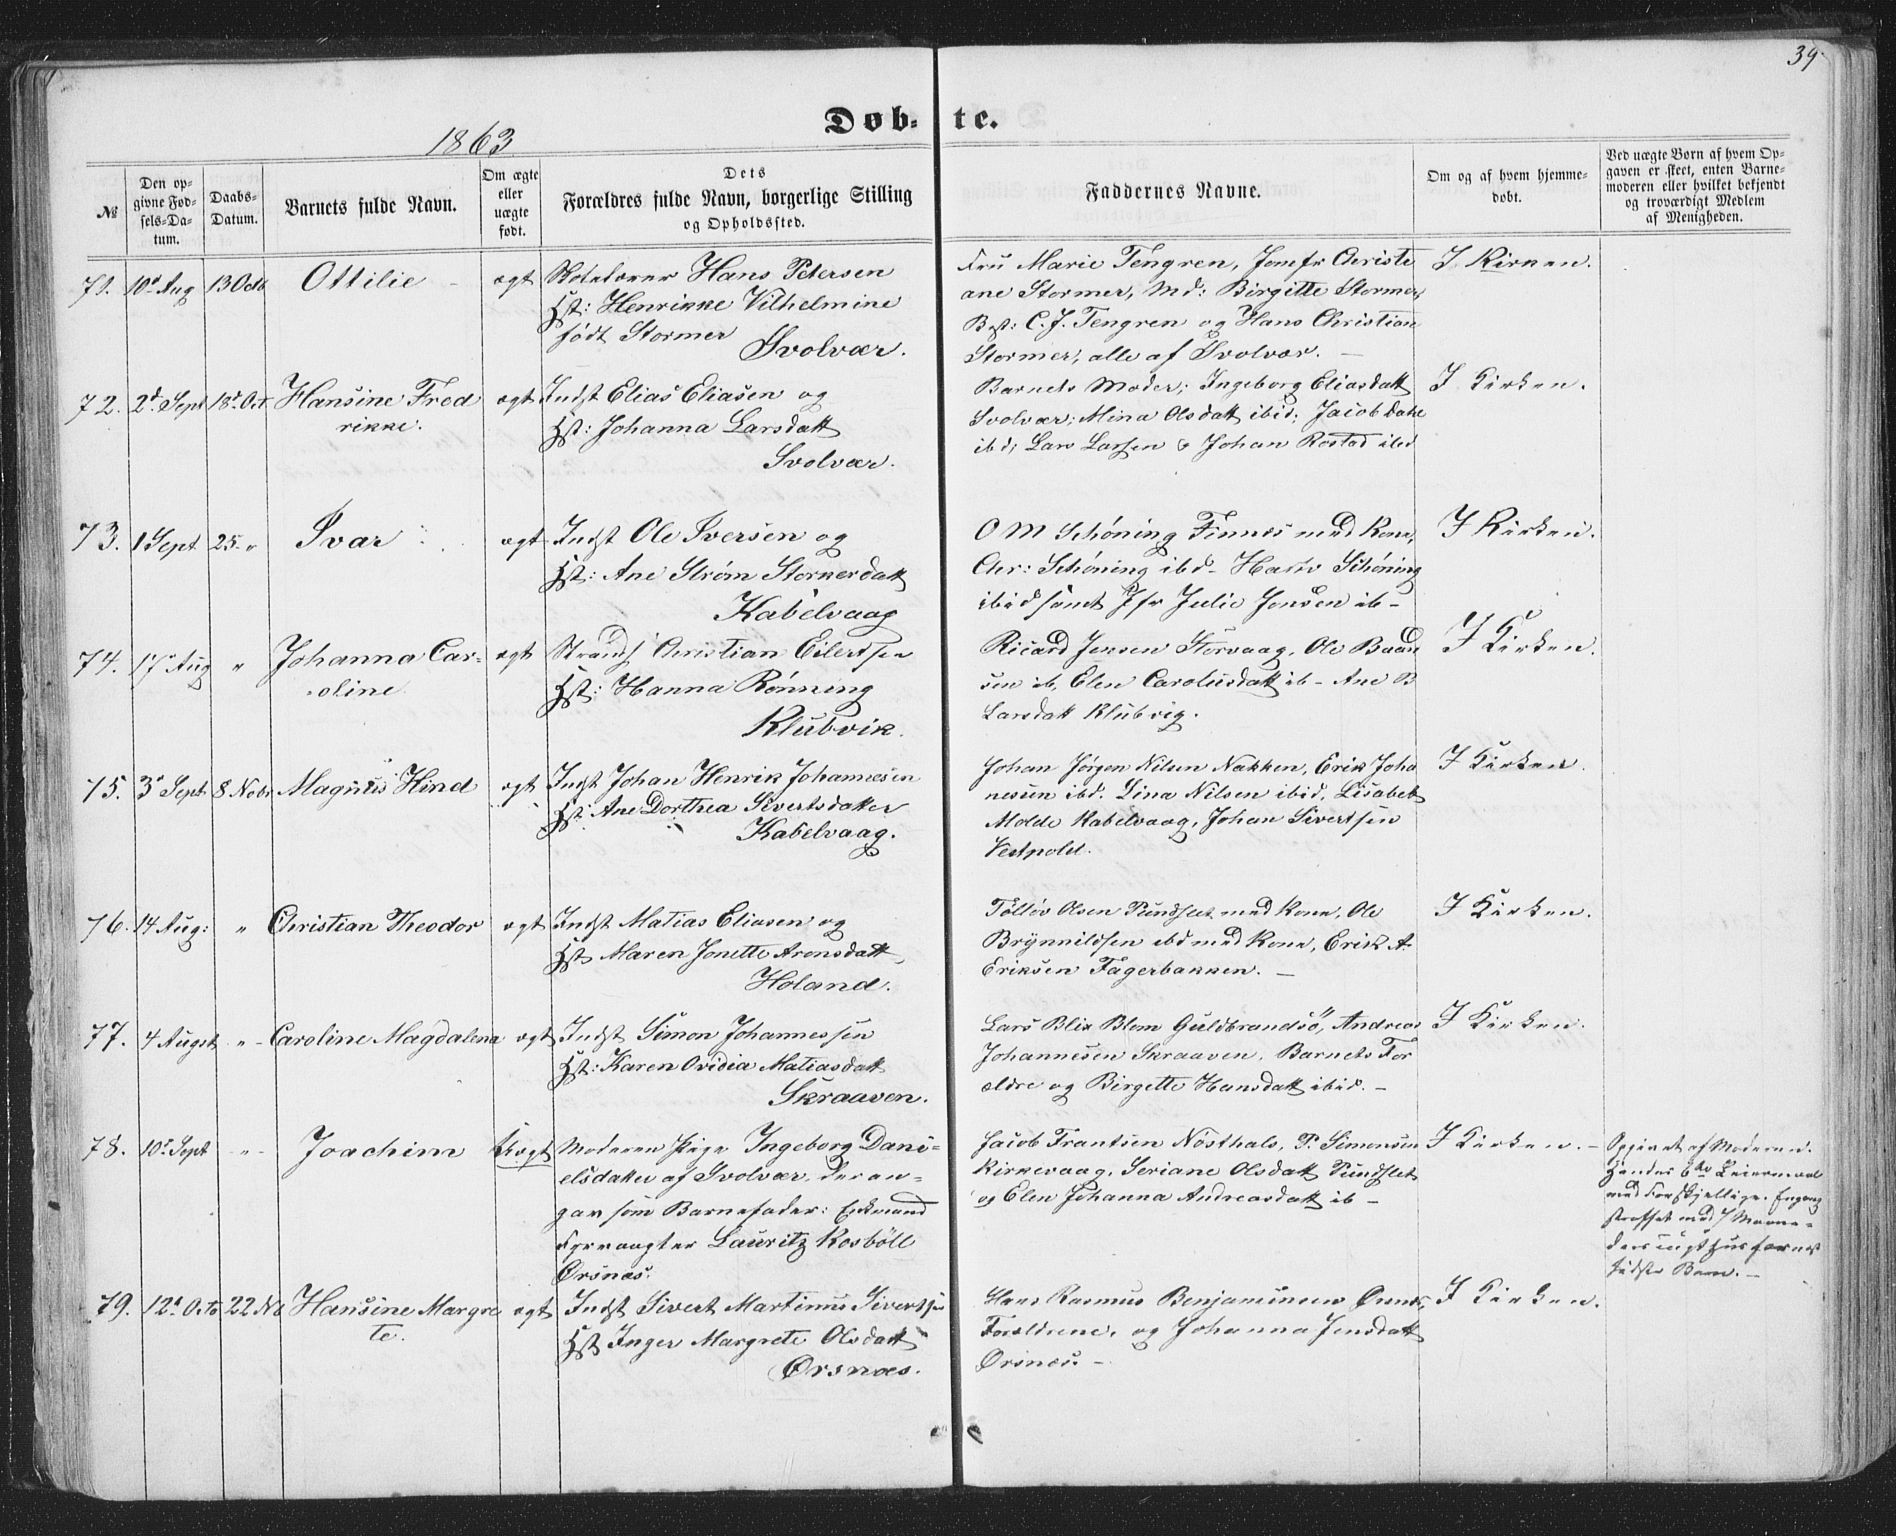 39.
1863
Døb-te.
№
Den op-
givne Fød-
sels-Da-
tum.
Daabs-
Datum.
Barnets fulde Navn.
Om ægte
eller
uægte
født.
Dets
Forældres fulde Navn, borgerlige Stilling
og Opholdssted.
Faddernes Navne.
Om og af hvem hjemme-
døbt.
Ved uægte Børn af hvem Op-
gaven er skeet, enten Barne-
moderen eller hvilket bekjendt
og troværdigt Medlem
af Menigheden.
71. 10d Aug 13 Octb Ottilie ægt Hans Petersen
Hst: Henrikke Vilhelmine
født Stormer
Svolvær.
Fru Marie Tengren, Jomfr Christi
ane Stormer, Md: Birgitte Stormer,
C. J. Tengren og Hans Christian
Stormer, alle af Svolvær. —
I Kirken.
72. 2d Sept 18d Oct Hansine Fred
rikke.
ægt Indst Elias Eliasen og
Hst: Johanna Larsdatt
Svolvær.
Barnets Moder; Ingeborg Eliasdatt
Svolvær; Mina Olsdatt ibid; Jacob
ibd; Lars Larsen & Johan Rostad ibd
I Kirken.
73. 1 Sept 25 " Ivar ægt Indst Ole Iversen og
Hst: Ane Strøm Storkerdatt
Kabelvaag
O M Schøning Finnes med Kone,
Chr: Schøning ibd - Hans Schøning
ibid samt Jfr Julie Jensen ib -
I Kirken.
74. 17 Aug " Johanna Car-
oline
ægt Strands Christian Eilertsen
Hst: Hanna Rønning
Klubvik.
Ricard Jensen Storvaag, Ole
sen ib, Elen Carolusdatt ib - Ane B
Larsdatt Klubvig.
I Kirken.
75. 3d Sept 8 Nobr Magnus Hind ægt Indst Johan Henrik Johannesen
Hst: Ane Dorthea Sivertsdatter
Kabelvaag.
Johan Jörgen Nilsen Nakken, Erik Joha
nesen ibd. Lina Nilsen ibid, Lisabet
Molde Kabelvaag, Johan Sivertsen
Vestpolld.
I Kirken.
76. 14 Aug: " Christian Theodor ægt Indst Matias Eliasen og
Hst Maren Jonette Aronsdatt
Holand.
Tollöv Olsen Pundslet med Kone, Ole
Brynnildsen ibd med Kone, Erik A.
Eriksen Fagerbakken. —
I Kirken.
77. 4 Augst " Caroline Magdalena ægt Indst Simon Johannessen
Hst: Karen Ovidia Matiasdatt
Skraaven.
Lars Blix Blom Guldbrandsö, Andreas
Johannesen Skraaven, Barnets For
ældre og Birgette Hansdatt ibid. -
I Kirken.
78. 10d Sept " Joachim Uægt Moderen Pige Ingeborg Dani-
elsdatter af Svolvær, der an-
gav som Barnefader: Enkmand
Fyrvaagter Lauritz Rosböll
Ørsnæs.
Jacob Frantsen Nösthals, P. Simonsen
Kirkevaag, Seriane Olsdatt Pundslet
og Elen Johanna Andreasdatt ib -
I Kirken. -
Opgivet af Moderen.
Hendes 6te Leiermaal
med Forskjellige. Engang
straffet med 7 Maane-
ders
sidste Barn. -
79. 12d Octo 22 Nb Hansine Margre
te.
ægt Indst Sivert Martinus Sivertsen
Hst Inger Margrete Olsdatt
Ørsnæs.
Hans Rasmus Benjaminsen Ørsnæs,
Forældrene, og Johanna Jensdatt
Ørsnæs. -
I Kirken.